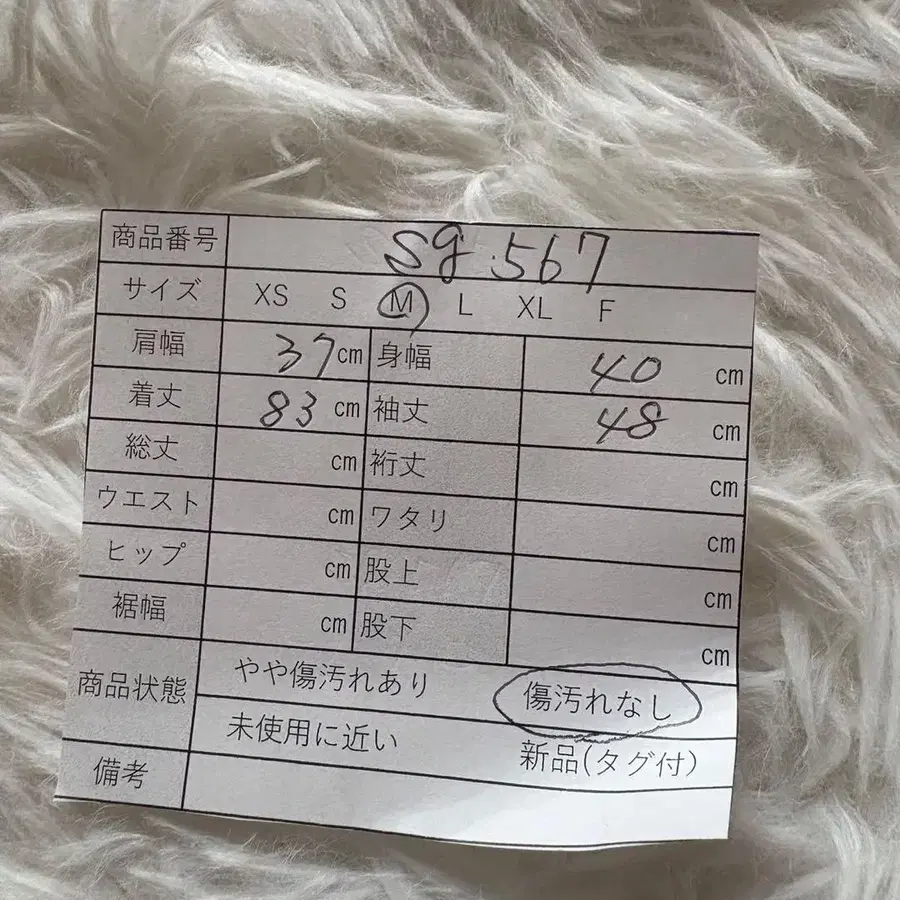 商品番号 sg.567
サイズ XS S M L XL F
肩幅 37cm 身幅 40 cm
着丈 83 cm 袖丈 48 cm
総丈 cm 裄丈 cm
ウエスト cm ワタリ cm
ヒップ cm 股上 cm
裾幅 cm 股下 cm
商品状態 やや傷汚れあり 傷汚れなし
未使用に近い 新品(タグ付)
備考